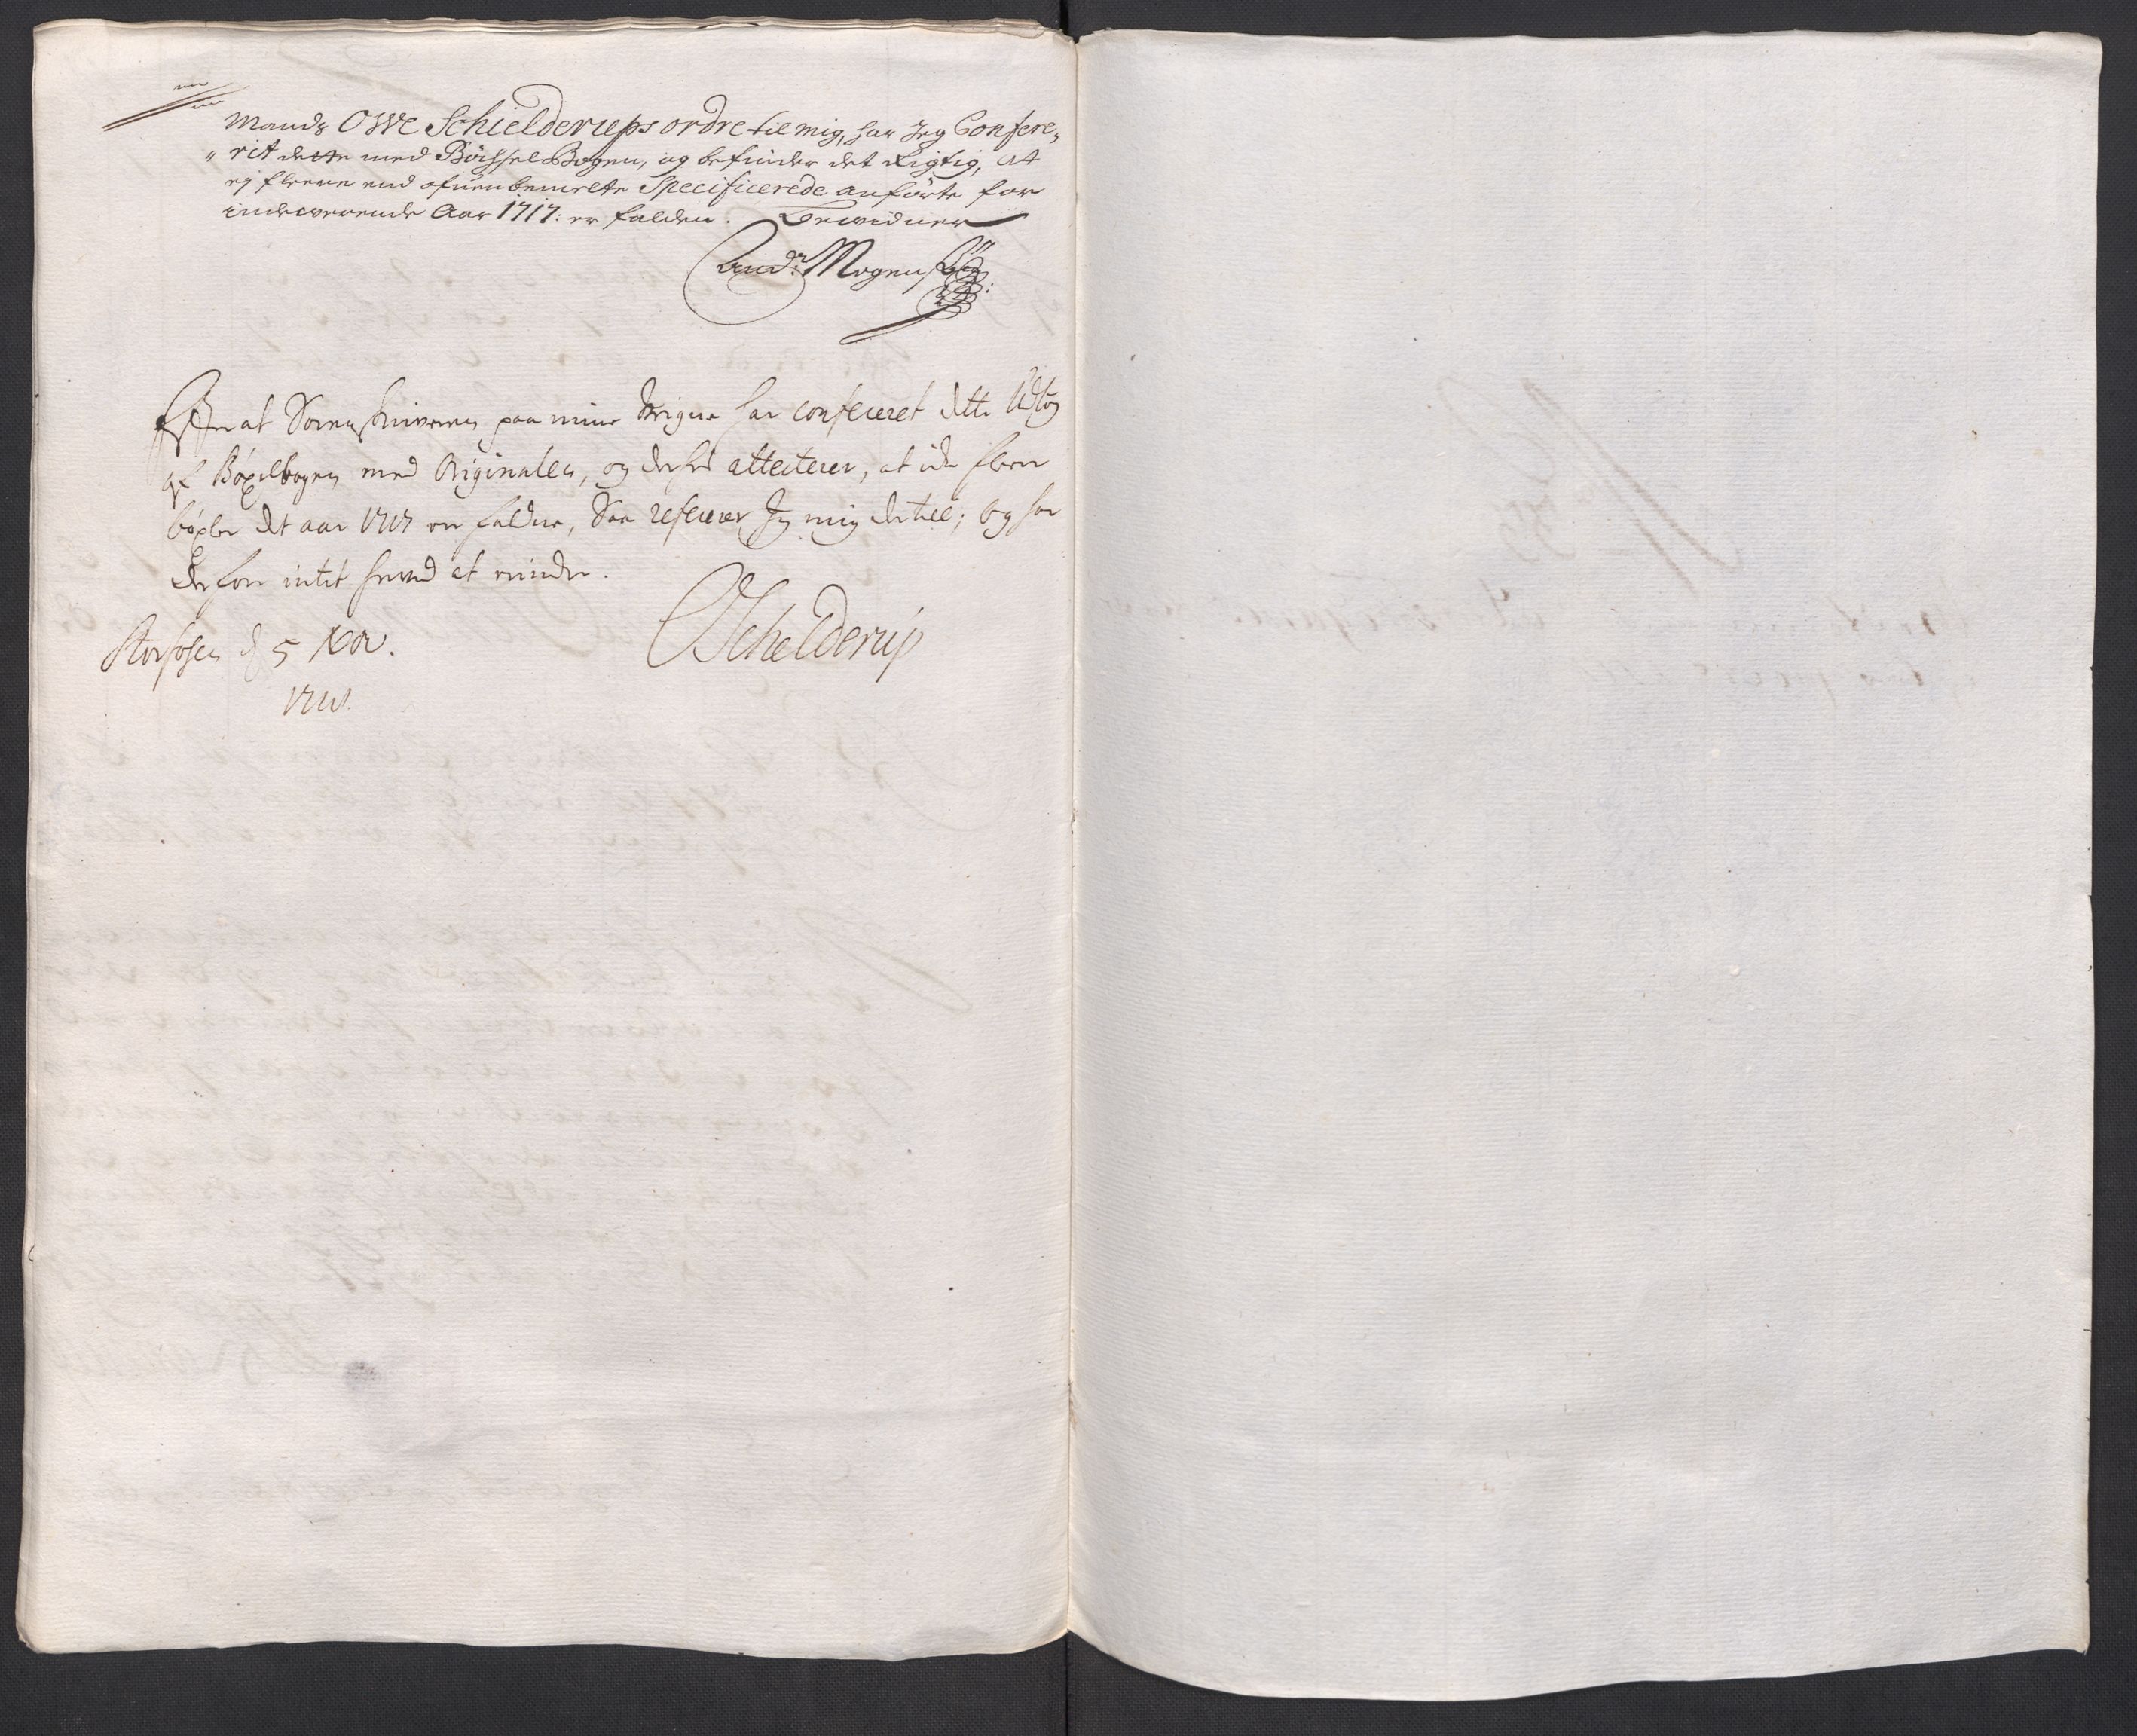 Mands OWe Schielderups ordre til mig, har Jeg Confere„
„rit dette med Böchsel Bogen, og befinder det Rigtig, at
ej fleere end ofuenbemelte Specificerede anförte for
indewerende Aar 1717: er falden. Testerer
And: Mogens
Efter at Sorenskriveren paa mine Vegne har confereret dette Udtog
af Böxelbogen med Originalen, og derhos attesterer, at icke fleere
böxler det aar 1717 er faldne, Saa refererer Jeg mig dertil; og har
derfore intet herved at erindre.
Storfosen d 5 Nov.
1718.
OSchelderup